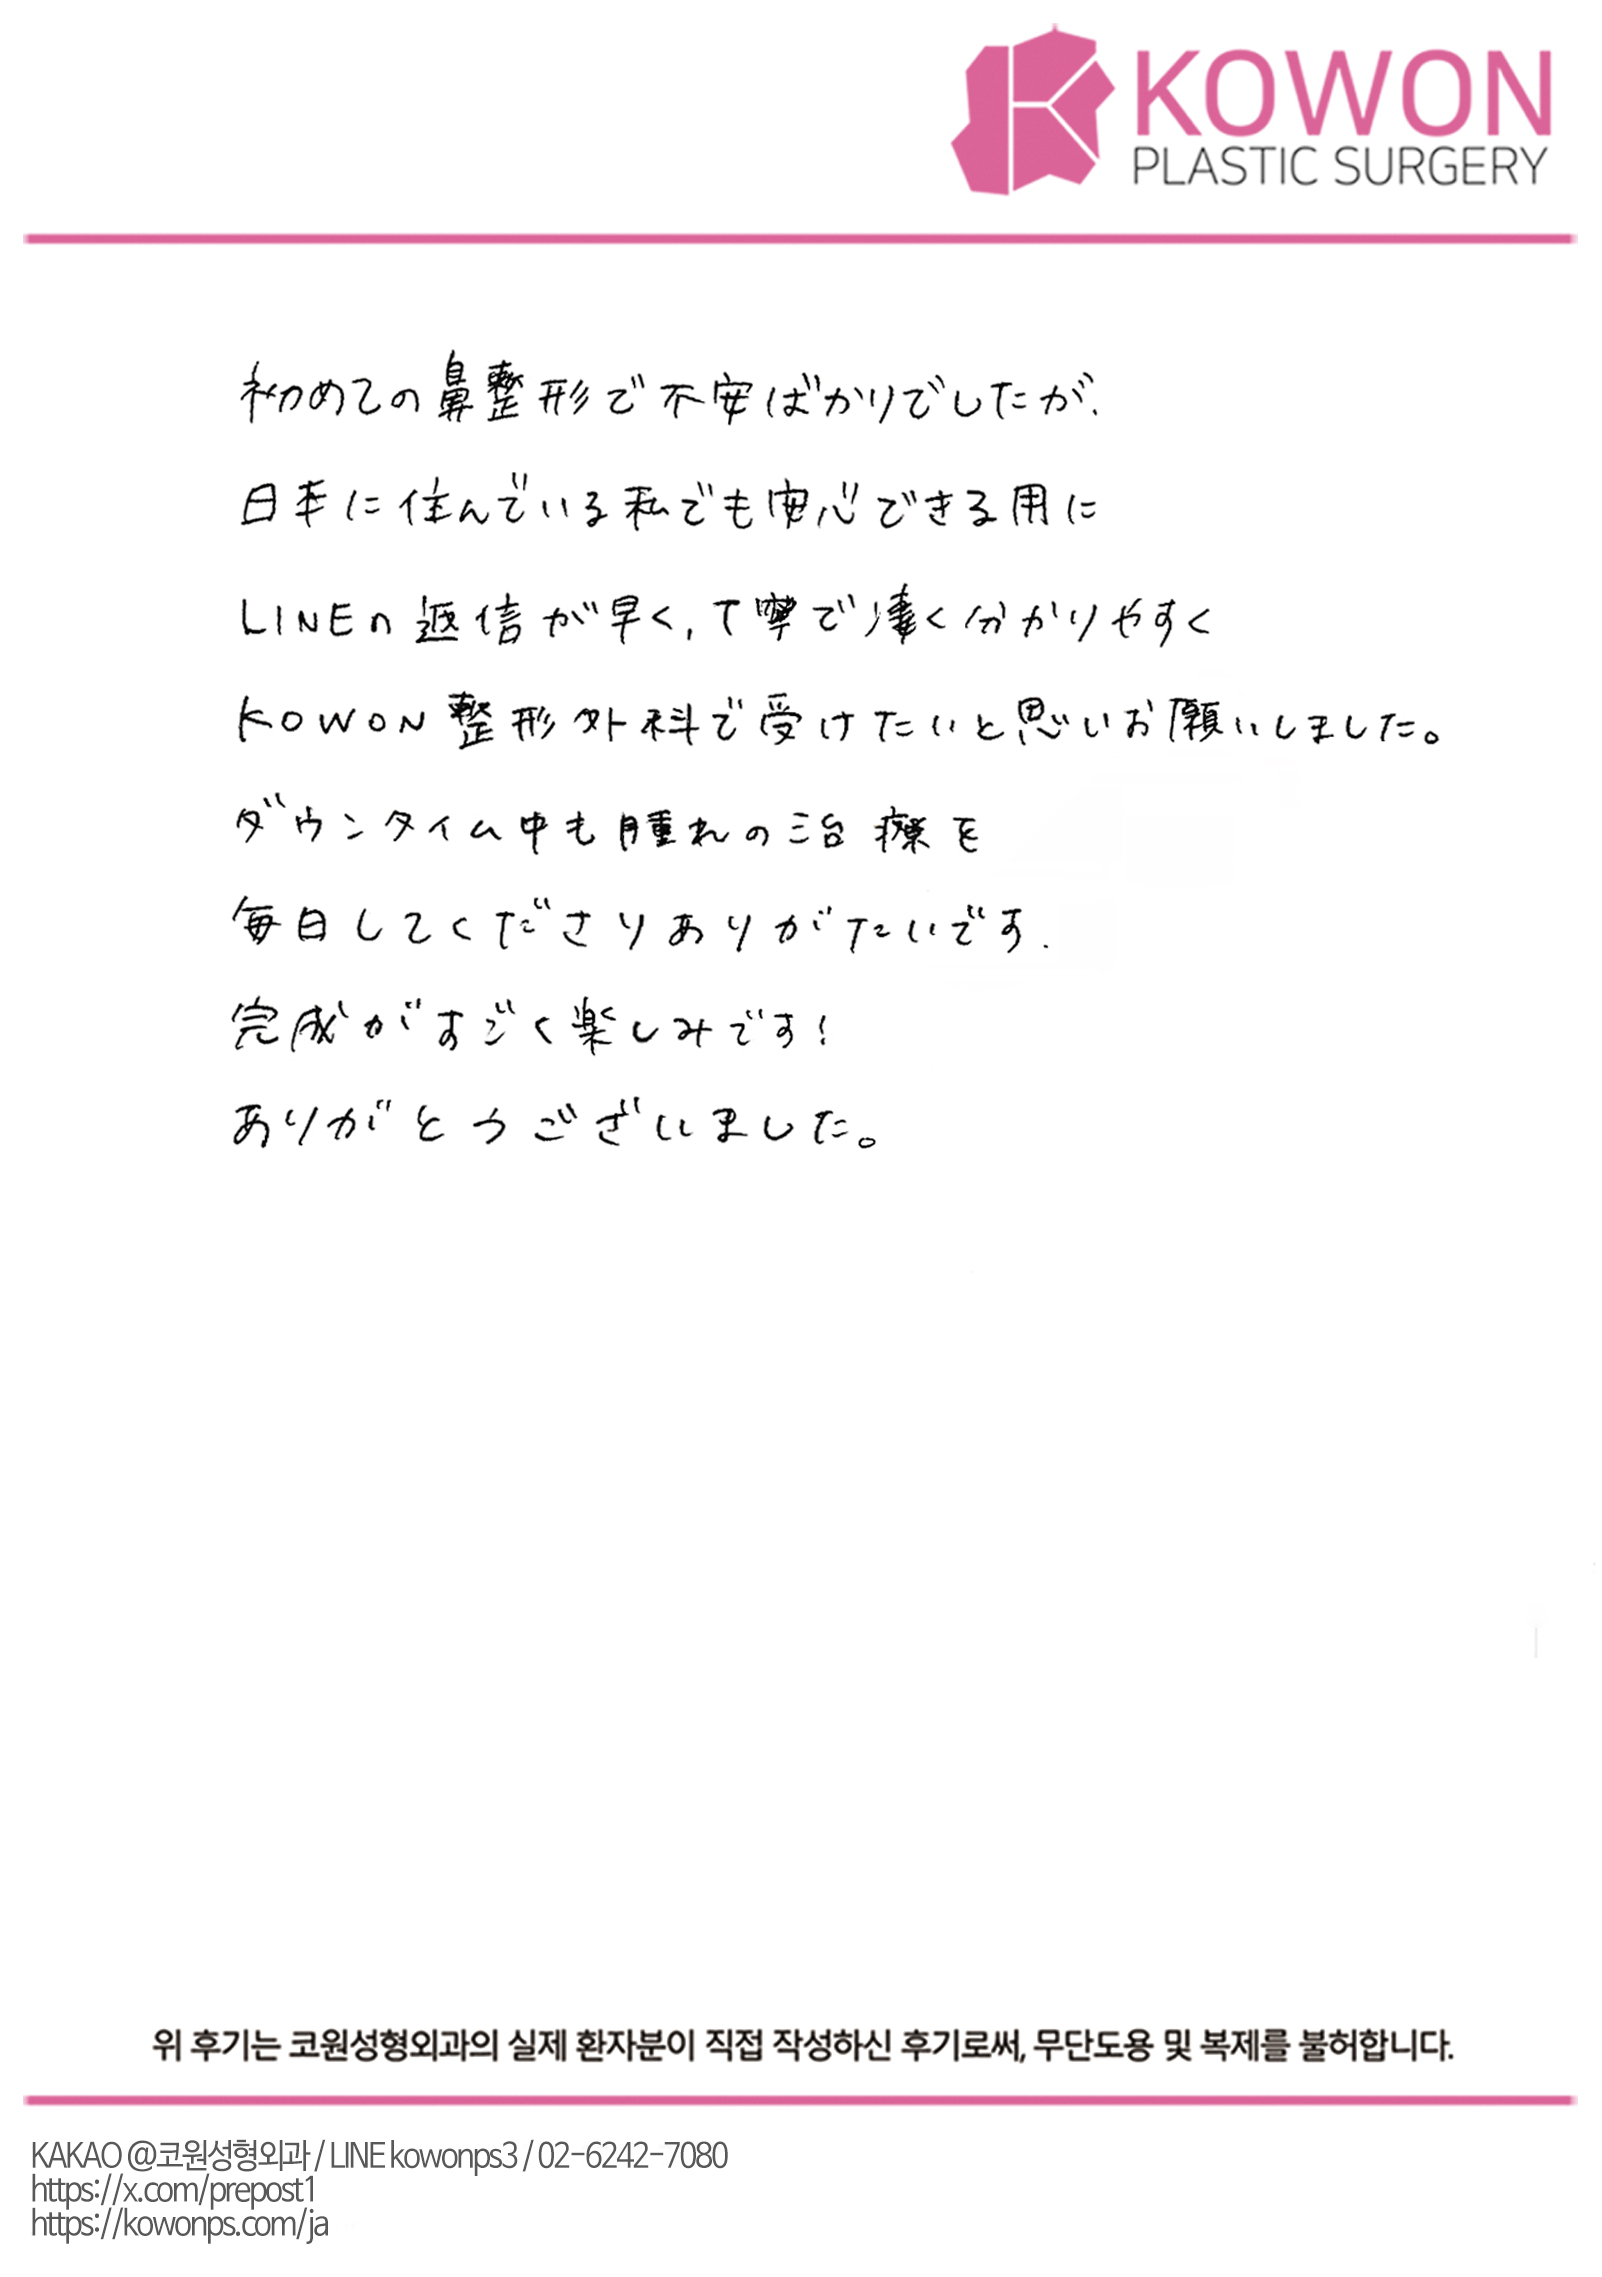 KOWON
PLASTIC SURGERY
初めての鼻整形で不安ばかりでしたが、
日本に住んでいる私でも安心できる用に
LINEの返信が早く、丁寧で凄く分かりやすく
KOWON整形外科で受けたいと思いお願いしました。
ダウンタイム中も腫れの治療を
毎日してくださりありがたいです.
完成がすごく楽しみです!
ありがとうございました。
위 후기는 코원성형외과의 실제 환자분이 직접 작성하신 후기로써, 무단도용 및 복제를 불허합니다.
KAKAO @코원성형외과 / LINE kowonps3 / 02-6242-7080
https://x.com/prepost1
https://kowonps.com/ja